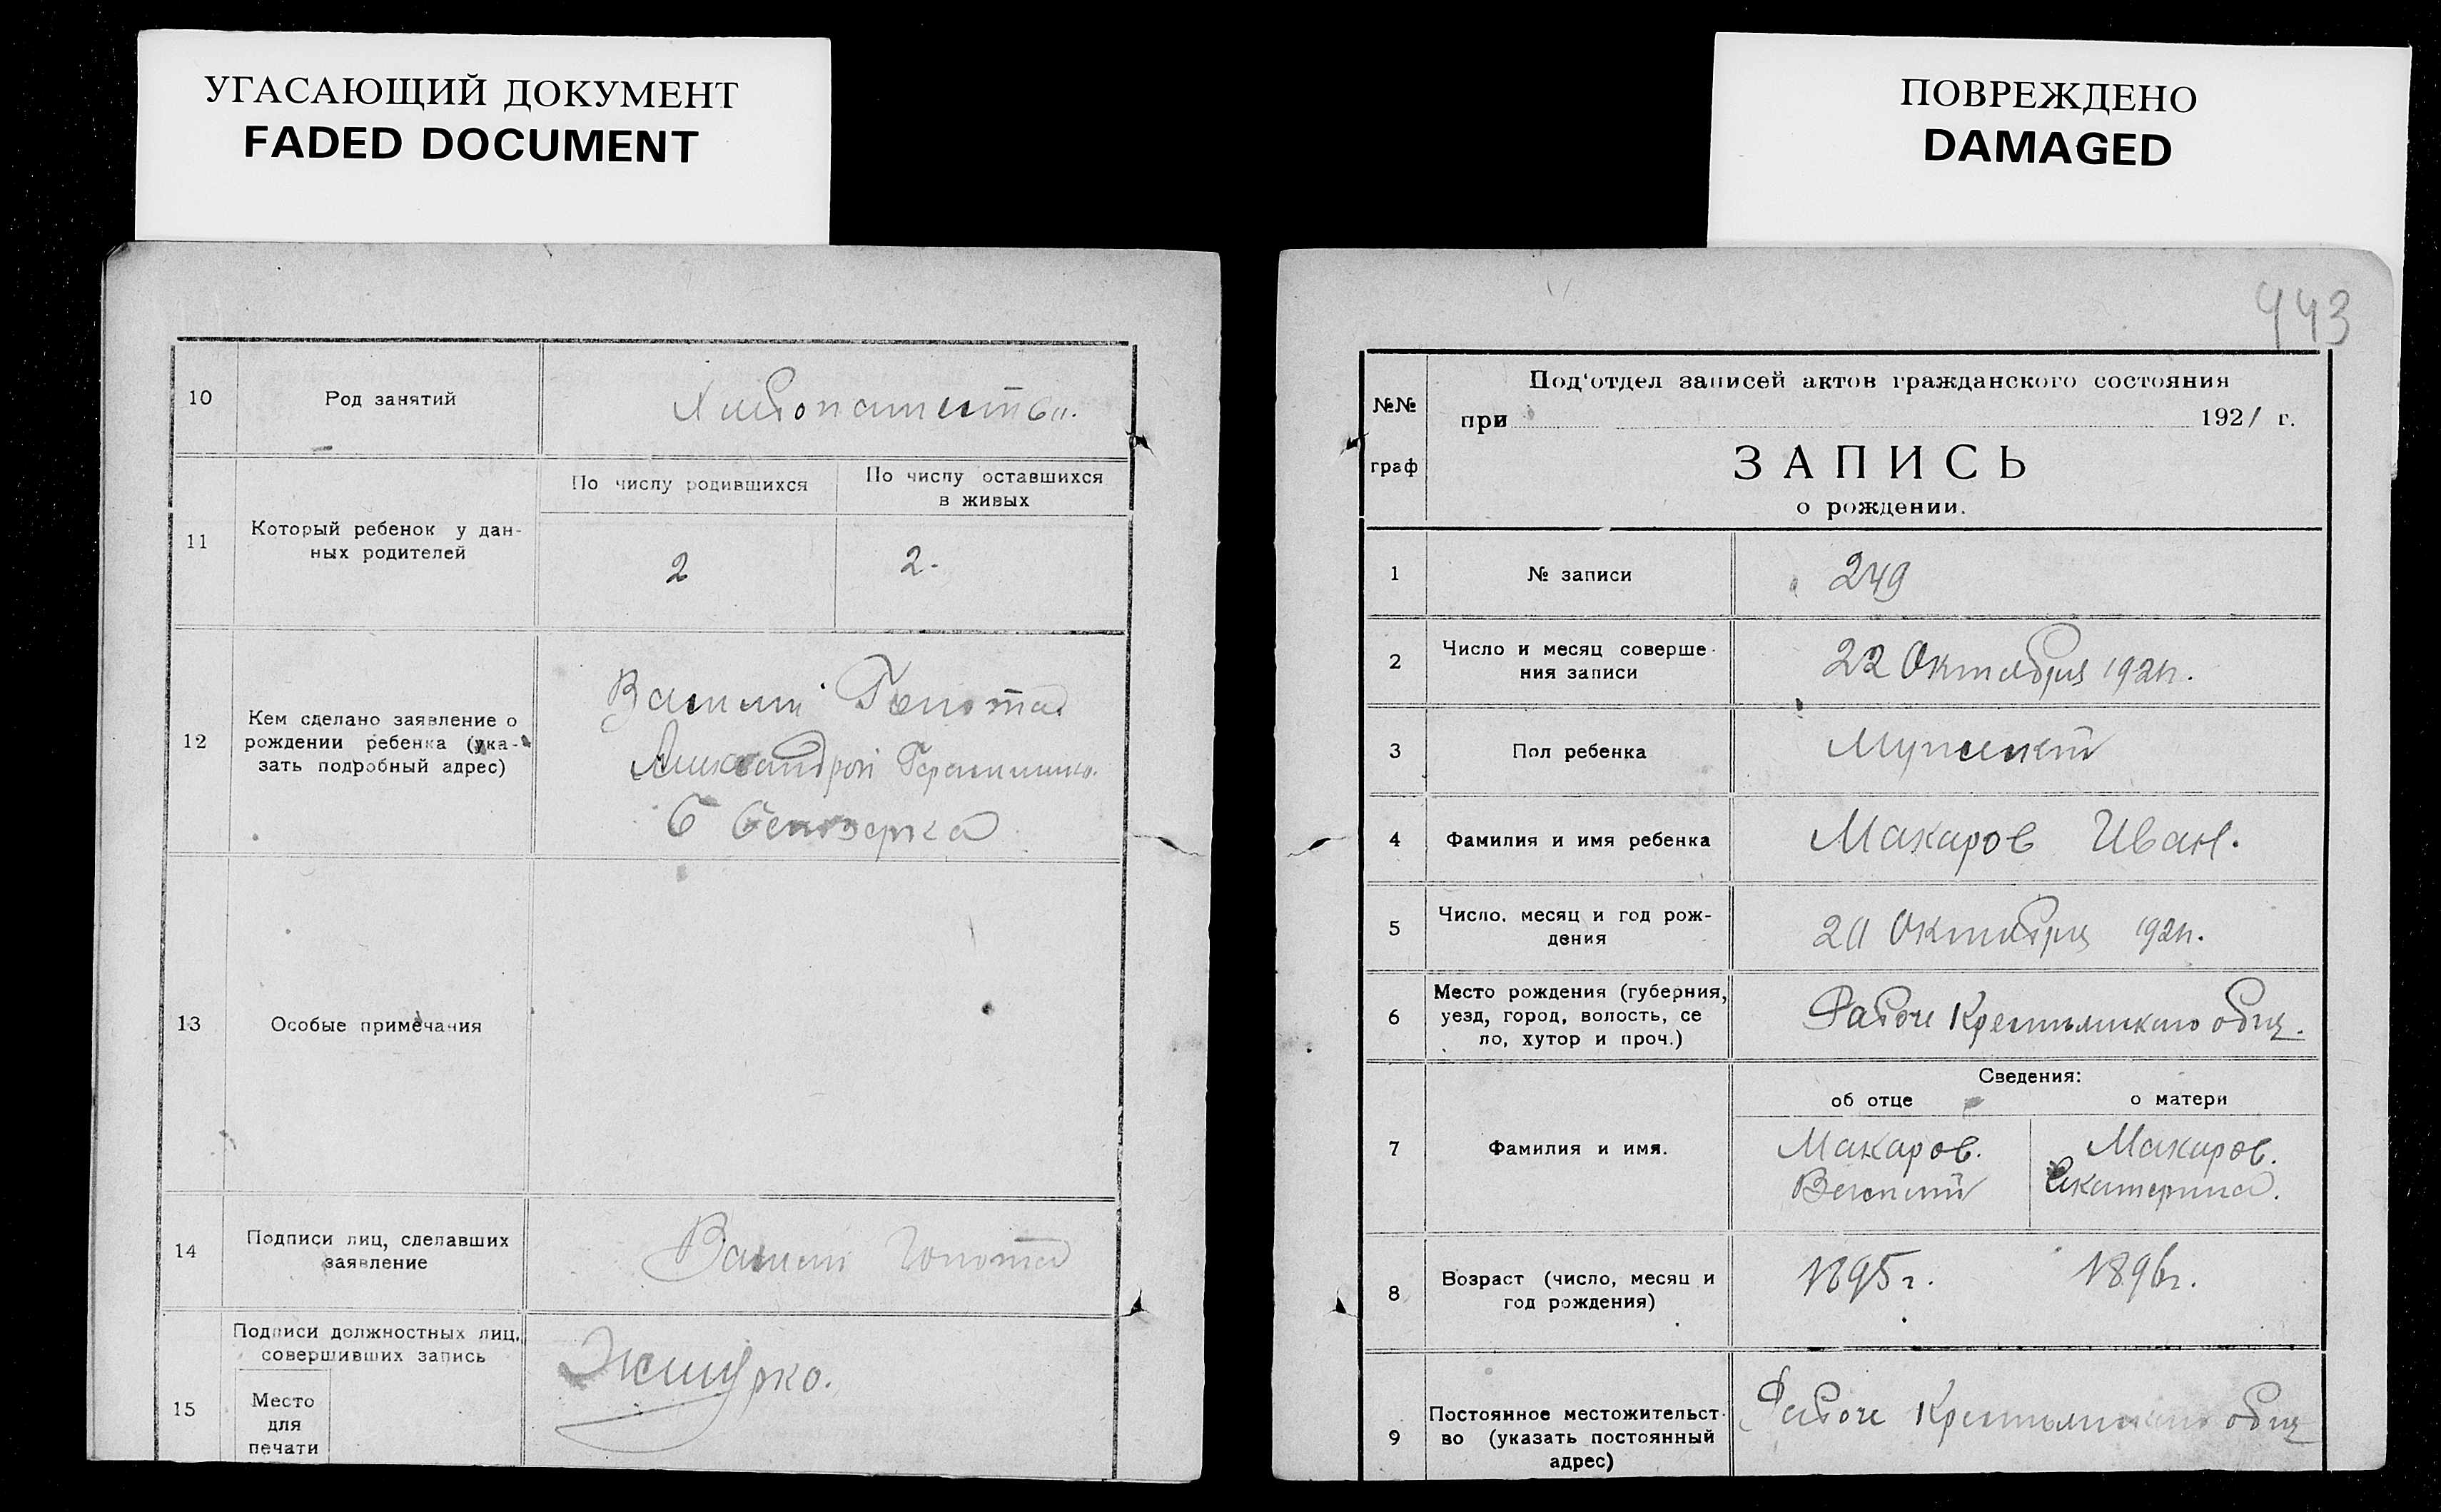 УГАСАЮЩИЙ ДОКУМЕНТ
FADED DOCUMENT
10
Род занятий
Хлебопашество.
11
Который ребенок у дан-
ных родителей
По числу родившихся
По числу оставшихся
в живых
2
2.
12
Кем сделано заявление о
рождении ребенка (ука-
зать подробный адрес)
Василий
Александрой
С Белозерка
13
Особые примечания
14
Подписи лиц, сделавших
заявление
Василий
15
Подписи должностных лиц,
совершивших запись
Место
для
печати
ПОВРЕЖДЕНО
DAMAGED
443
№№
граф
Под‘отдел записей актов гражданского состояния
при 1921 г.
ЗАПИСЬ
о рождении.
1
№ записи
249
2
Число и месяц соверше-
ния записи
22 Октября 1921г.
3
Пол ребенка
Мужской
4
Фамилия и имя ребенка
Макаров Иван.
5
Число, месяц и год рож-
дения
20 Октября 1921г.
6
Место рождения (губерния,
уезд, город, волость, се
ло, хутор и проч.)
Рабоче Крестьянского общ.
Сведения:
об отце
о матери
7
Фамилия и имя.
Макаров.
Василий
Макаров.
Екатерина.
8
Возраст (число, месяц и
год рождения)
1895г.
1896г.
9
Постоянное местожительст-
во (указать постоянный
адрес)
Рабоче Крестьянского общ